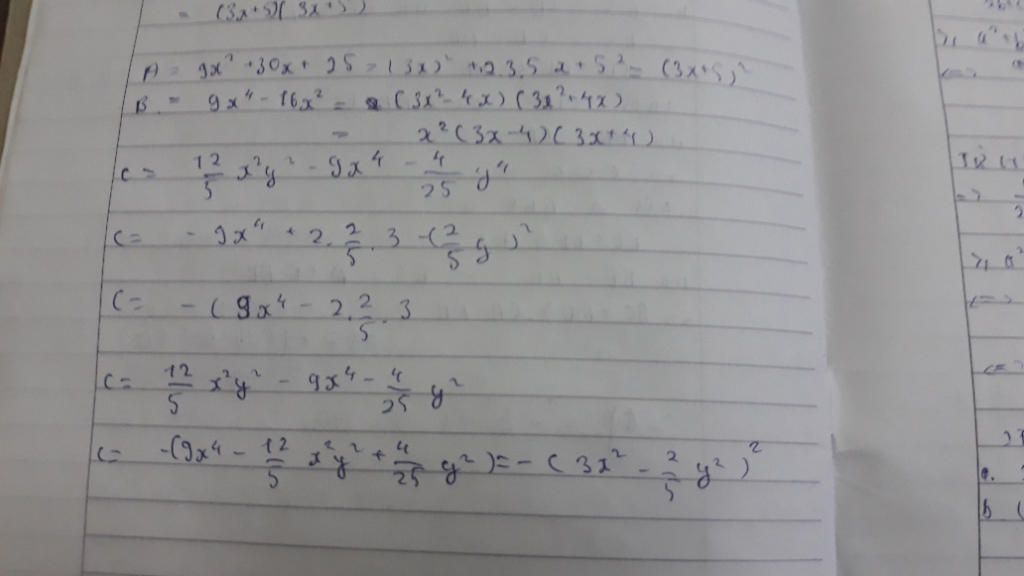 = (3x+5)(3x+5)
A = 9x² + 30x + 25 = (3x)² + 2.3.5 x + 5² = (3x+5)²
B. = 9x⁴ - 16x² = (3x² - 4x) (3x² + 4x)
= x² (3x - 4) (3x + 4)
C = 12/5 x²y² - 9x⁴ - 4/25 y⁴
C = - 9x⁴ + 2. 2/5 . 3 - (2/5 y)²
C = - ( 9x⁴ - 2. 2/5 . 3
C = 12/5 x²y² - 9x⁴ - 4/25 y²
C = -(9x⁴ - 12/5 x²y² + 4/25 y²) = - ( 3x² - 2/5 y² )²
⩾ a²
<=>
=>
2
⩾ a²
<=>
a.
b (